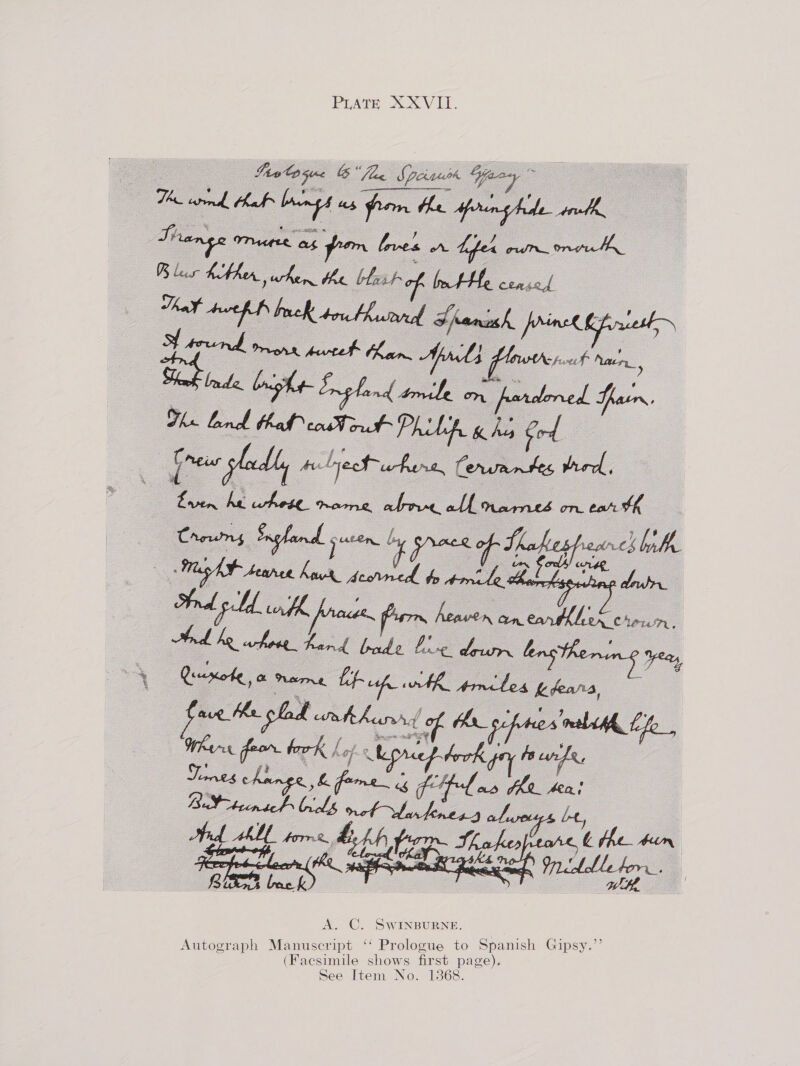 PLATE XXVII.
Prologue to "The Spanish Gipsy"
The wind that brings us from the springtide south
Strange music as from love's or life's own mouth
Blew hither, when the blast of battle ceased
That swept back southward Spanish prince & priest,
A sound more sweet than April's flower-sweet rain,
And
That bade bright England smile on pardoned Spain.
The land that cast out Philip & his God
Grew gladly subject where Cervantes trod.
Even he whose name above all names on earth
Crowns England queen by grace of Shakespeare's birth
in God's wise
Might scarce have scorned to smile down
And gild with praise from heaven an earthlier crown.
And he whose hand bade live down lengthening years
Quixote, a name lit up with smiles & tears,
Gave the glad watchword of the gipsies' life,
Where fear took hope & grief took joy to wife.
Times change, & fame is fitful as the sea:
But sunset bids not darkness always be,
And still some light from Shakespeare & the sun
Burns back (the cloud that masks not) Middleton.
With
A. C. SWINBURNE.
Autograph Manuscript "Prologue to Spanish Gipsy."
(Facsimile shows first page).
See Item No. 1368.